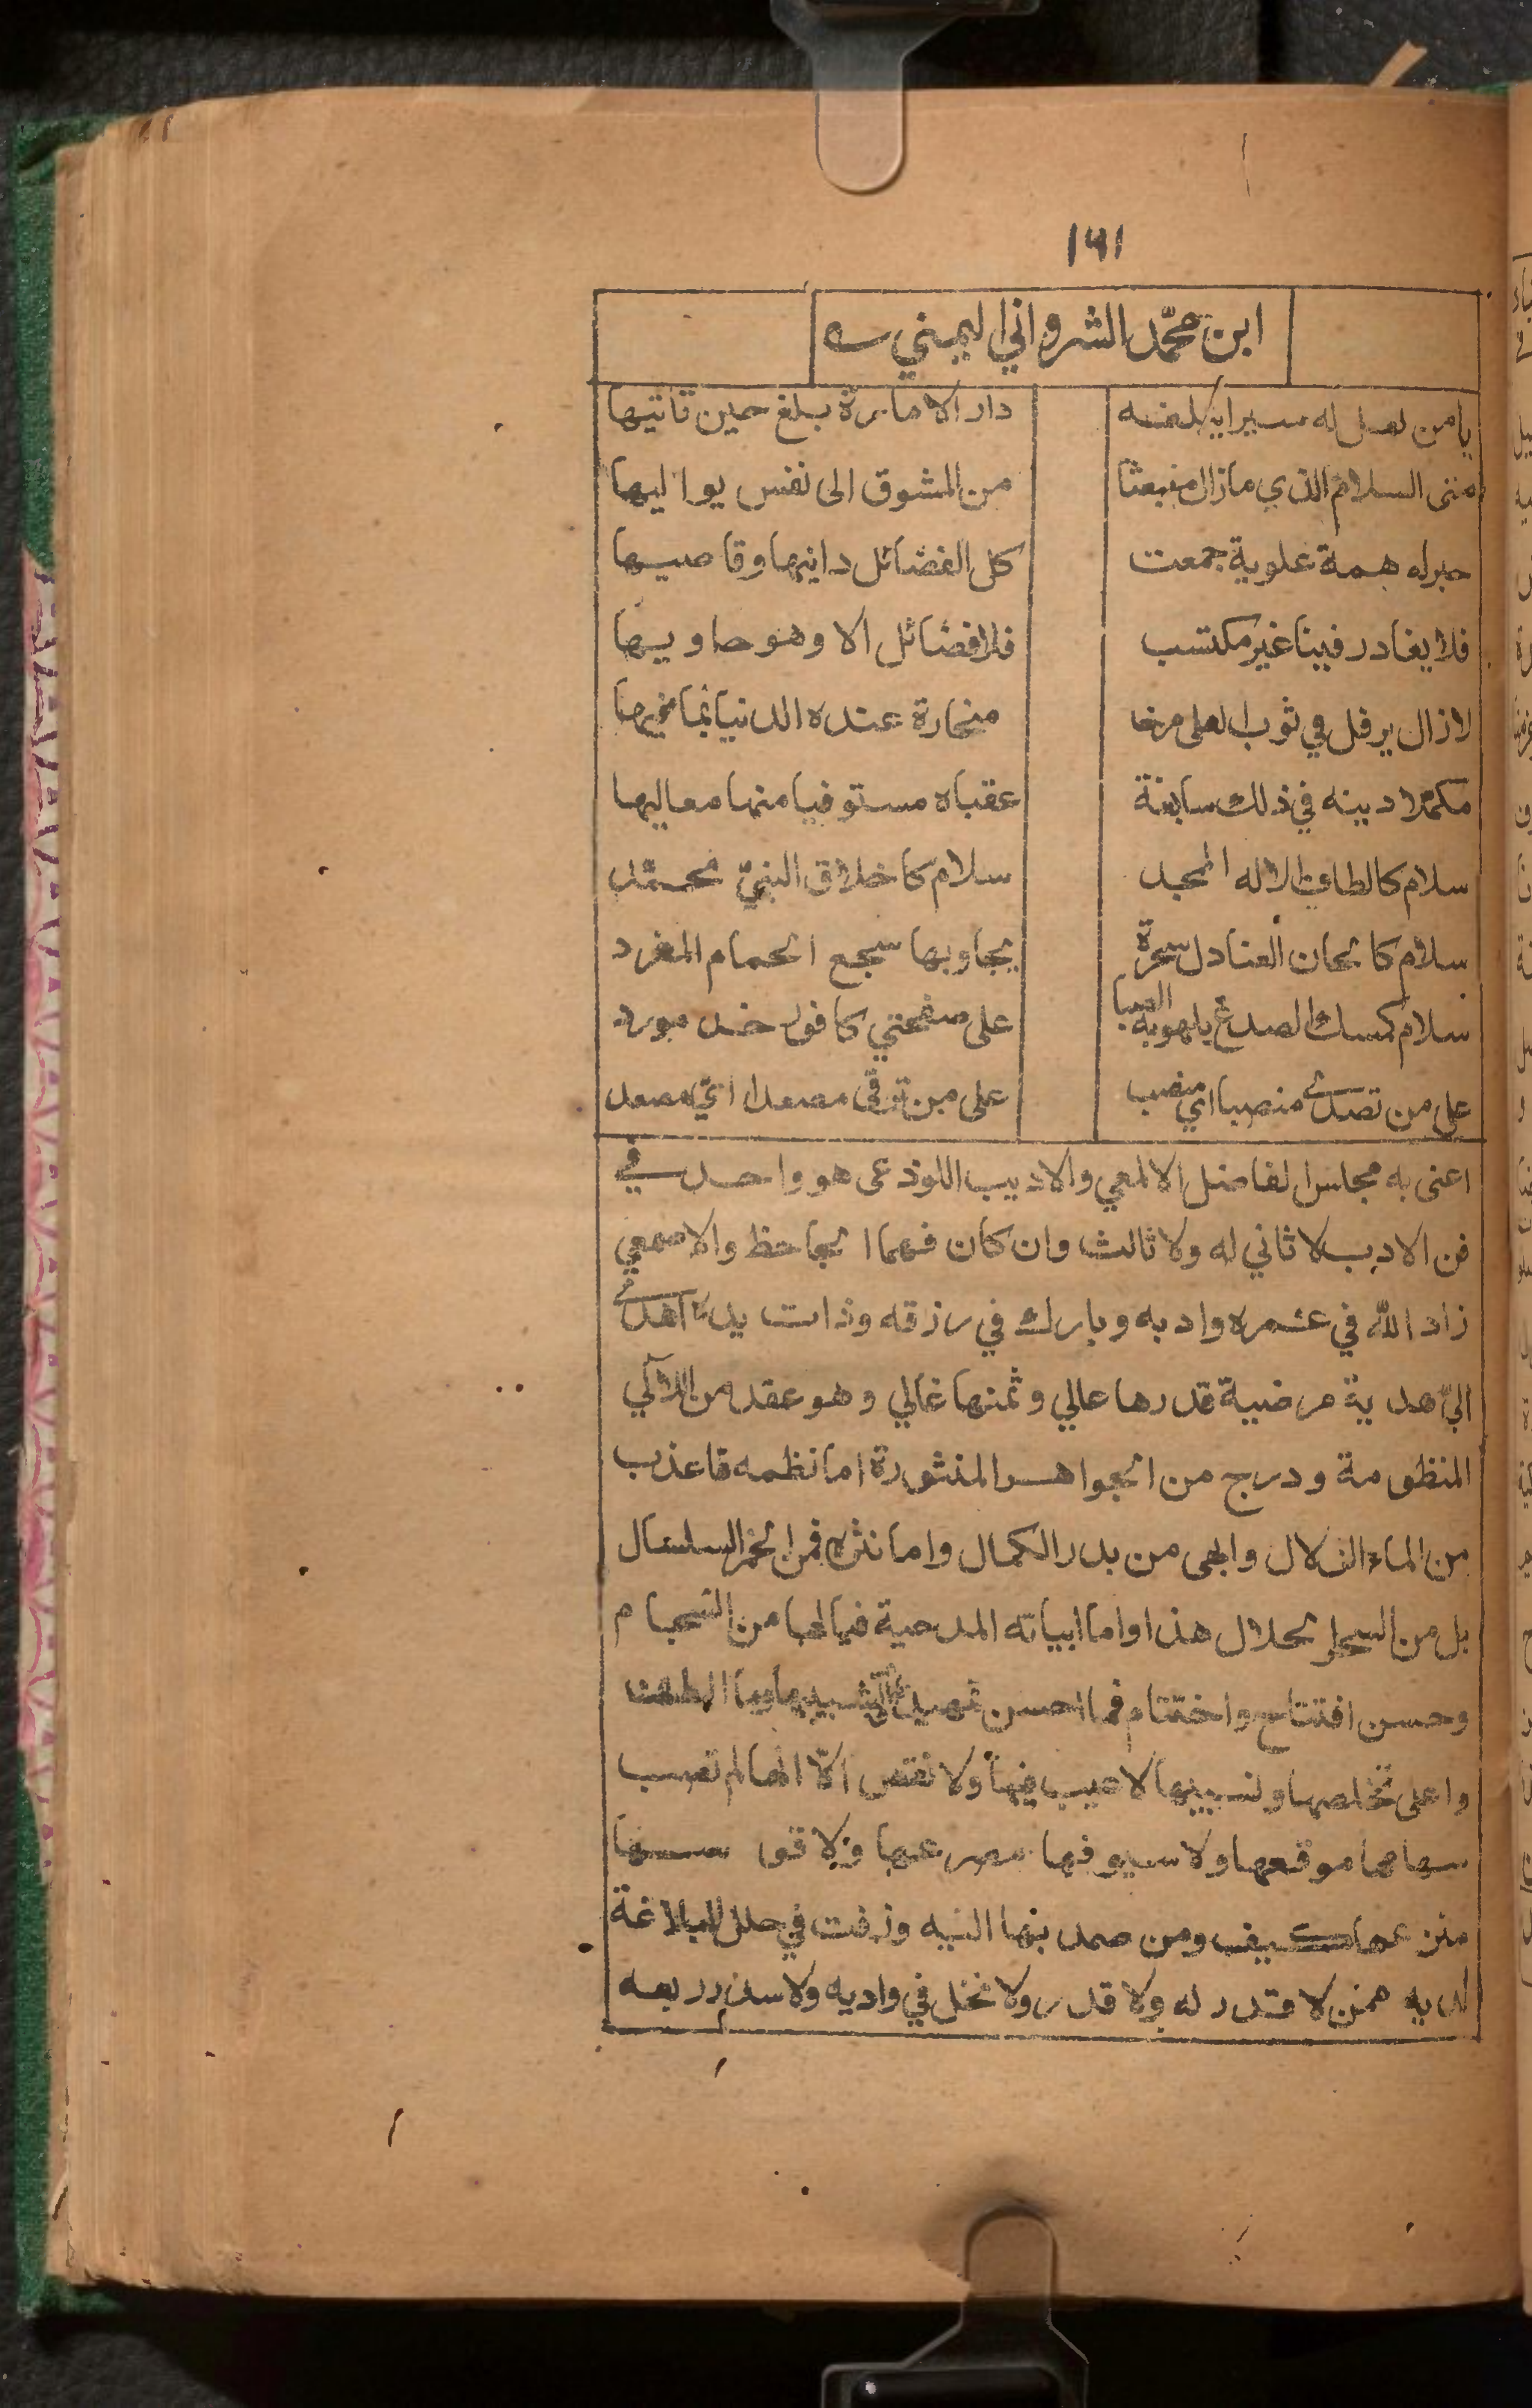 ١٦١
ابن محمّد الشرواني اليمني
يا من لعل له سيرا يكلفه دار الامارة بلغ حين تأتيها
منى السلام الذي مازال منبعثا من المشوق الى نفس يواليها
حبر له همة علوية جمعت كل الفضائل دانيها وقاصيها
فلا يغادر فينا غير مكتسب فلا فضائل الا وهو حاويها
لازال يرفل في ثوب العلى مرخا منحازة عنده الدنيا بما فيها
مكملا دينه في ذلك سابغة عقباه مستوفيا منها معاليها
سلام كالطاف الاله الممجد سلام كاخلاق النبيّ محمّد
سلام كالحان العنادل سحرة يجاوبها سجع الحمام المغرد
سلام كمسك الصدغ يلهو به الصبا على صفحتي كافور خد مورد
على من تصدى منصبا اي منصب على من ترقّى مصعدا ايّ مصعد
اعنى به مجلس الفاضل الالمعي والاديب اللوذعى هو واحد في
فن الادب لا ثاني له ولا ثالث وان كان فهما الجاحظ والاصمعي
زاد اللّه في عمره وادبه وبارك في رزقه وذات يده اهدى
اليّ هدية مرضية قدرها عالي وثمنها غالي وهو عقد من اللآلي
المنظومة ودرج من الجواهر المنثورة اما نظمه فاعذب
من الماء الزلال وابهى من بدر الكمال واما نثره فمن الخمر السلسال
بل من السحر الحلال هذا واما ابياته المدحية فيالها من انسجام
وحسن افتتاح واختتام فما احسن تشبيبها وما الطف
واعلى تخلصها ونسيبها لا عيب فيها ولا نقص الّا انها لم تصب
سهامها موقعها ولا سيوفها مصرعها ولا قوسها
منزعها كيف ومن صمد بها اليه وزفت في حلل البلاغة
لديه ممن لا قدر له ولا قدر ولا نخل في واديه ولا سدر